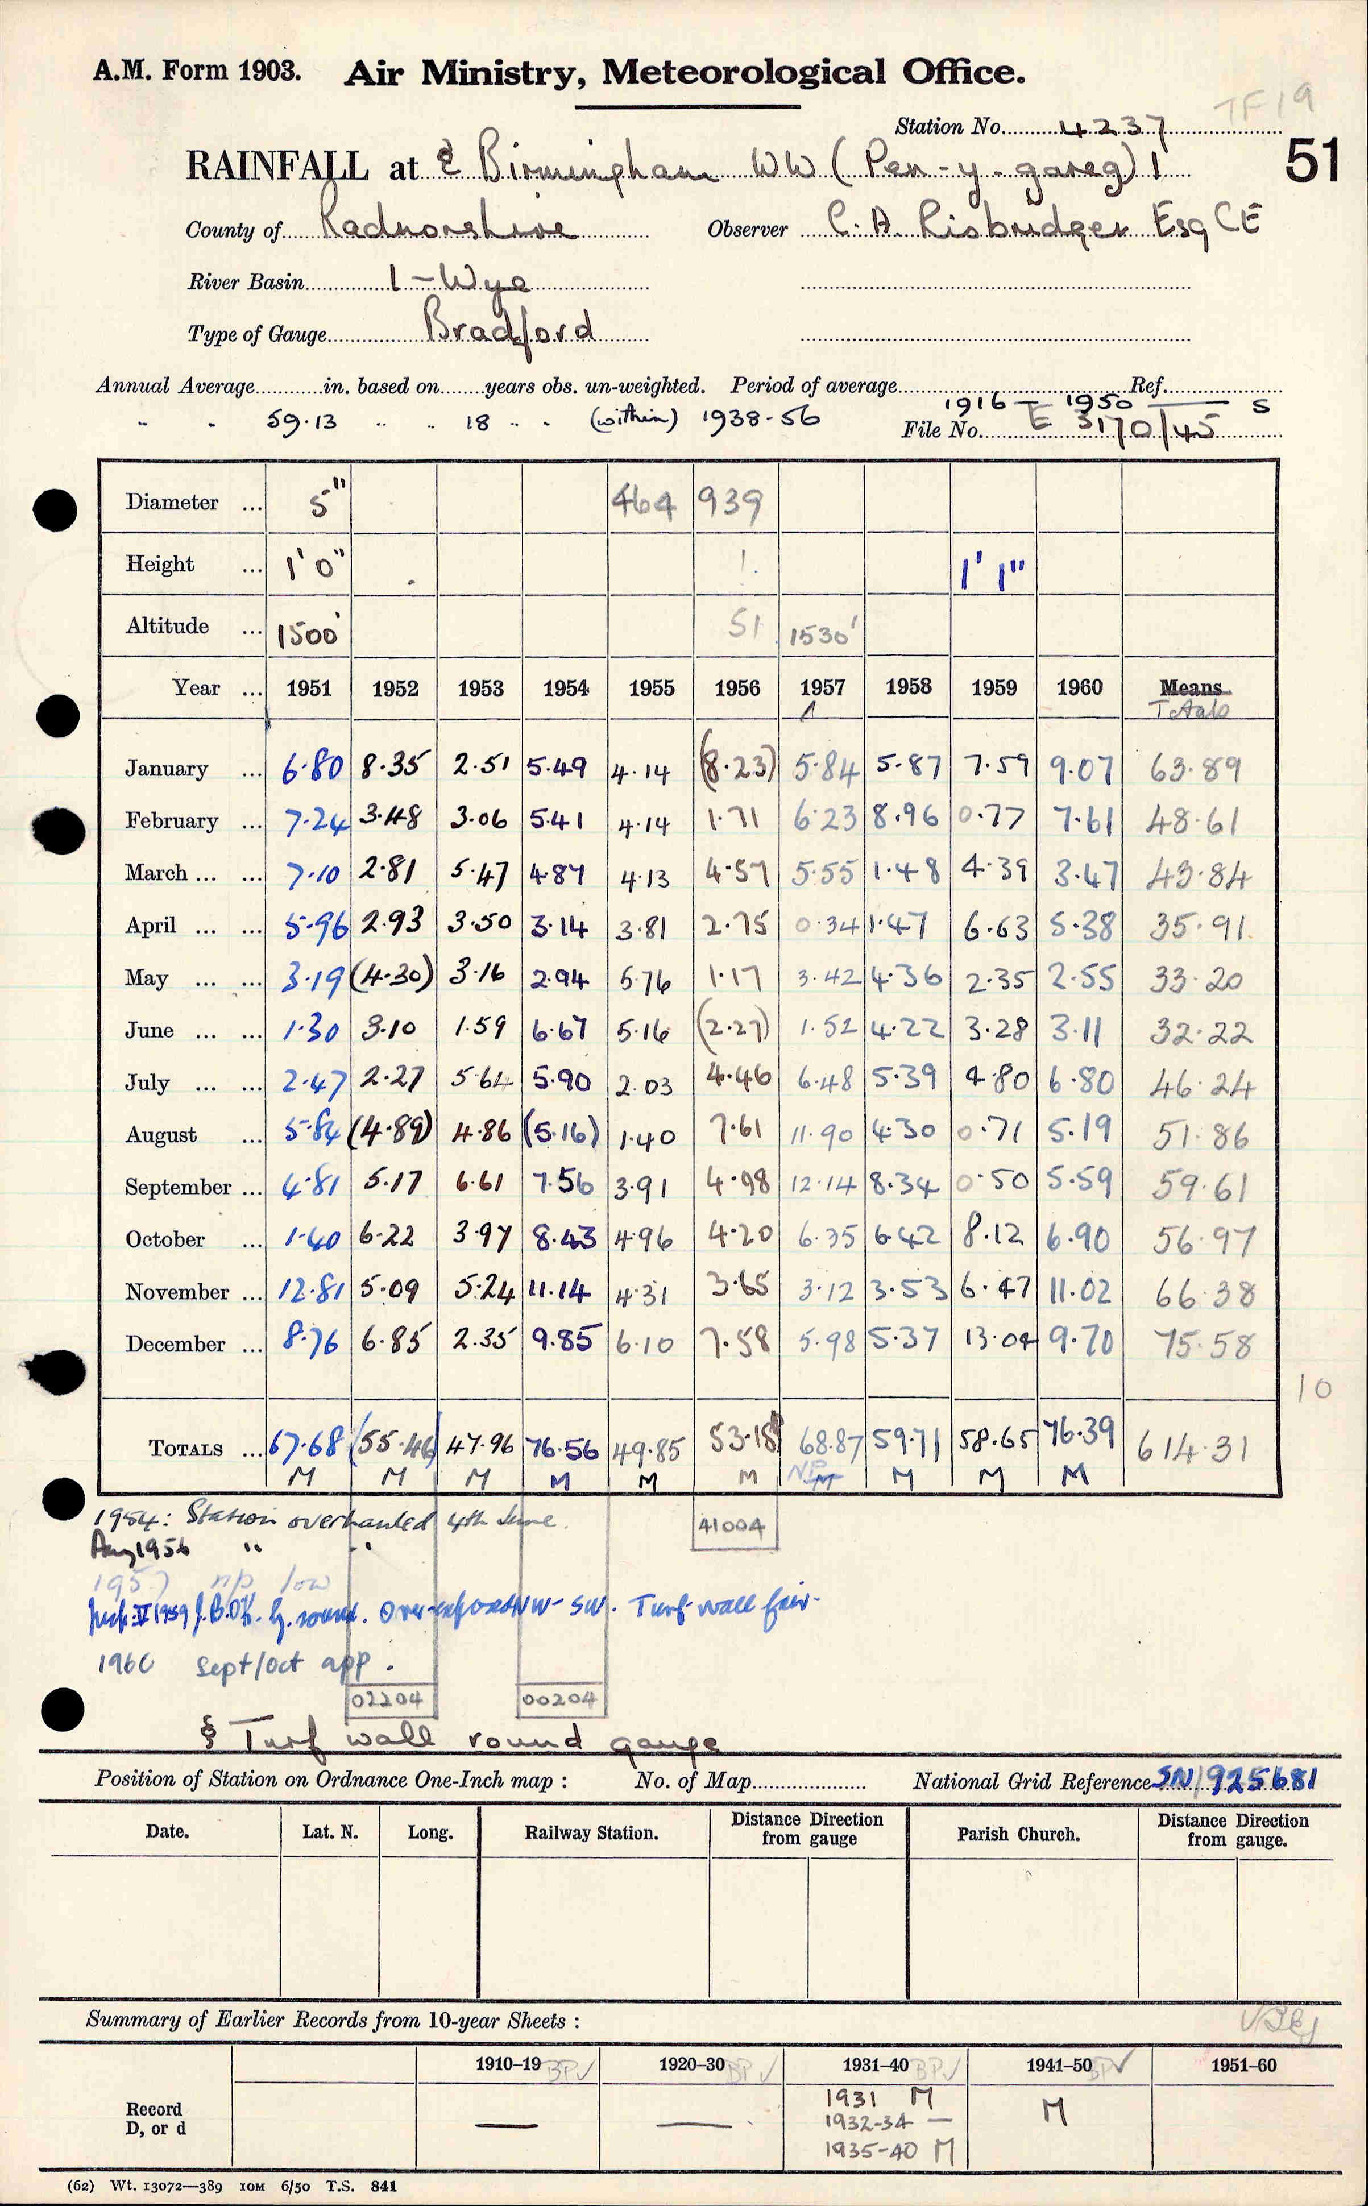 TF19
A.M. Form 1903. Air Ministry, Meteorological Office.
Station No. 4237
51
RAINFALL at § Birmingham WW (Pen-y-gareg) 1
County of Radnorshire Observer C. A. Risbridger Esq CE
River Basin 1 - Wye
Type of Gauge Bradford
Annual Average in. based on years obs. un-weighted. Period of average 1916 - 1950 Ref. S
" " 59.13 " " 18 " " (within) 1938-56 File No. E 3170/45
Diameter ... 5" 464 939
Height ... 1' 0" 1' 1"
Altitude ... 1500' 51 1530'
Year ... 1951 1952 1953 1954 1955 1956 1957 1958 1959 1960 Means
Totals
January ... 6.80 8.35 2.51 5.49 4.14 (8.23) 5.84 5.87 7.59 9.07 63.89
February ... 7.24 3.48 3.06 5.41 4.14 1.71 6.23 8.96 0.77 7.61 48.61
March ... ... 7.10 2.81 5.47 4.87 4.13 4.57 5.55 1.48 4.39 3.47 43.84
April ... ... 5.96 2.93 3.50 3.14 3.81 2.75 0.34 1.47 6.63 5.38 35.91
May ... ... 3.19 (4.30) 3.16 2.94 5.76 1.17 3.42 4.36 2.35 2.55 33.20
June ... ... 1.30 3.10 1.59 6.67 5.16 (2.27) 1.52 4.22 3.28 3.11 32.22
July ... ... 2.47 2.27 5.64 5.90 2.03 4.46 6.48 5.39 4.80 6.80 46.24
August ... 5.84 (4.89) 4.86 (5.16) 1.40 7.61 11.90 4.30 0.71 5.19 51.86
September ... 4.81 5.17 6.61 7.56 3.91 4.98 12.14 8.34 0.50 5.59 59.61
October ... 1.40 6.22 3.97 8.43 4.96 4.20 6.35 6.42 8.12 6.90 56.97
November ... 12.81 5.09 5.24 11.14 4.31 3.65 3.12 3.53 6.47 11.02 66.38
December ... 8.76 6.85 2.35 9.85 6.10 7.58 5.98 5.37 13.04 9.70 75.58
10
TOTALS ... 67.68 (55.46) 47.96 76.56 49.85 53.18 68.87 59.71 58.65 76.39 614.31
M M M M M M NP M M M M
1954: Station overhauled 4th June. 41004
Aug 1956 " "
1957 np low
1959 Over-exposed NW - SW. Turf wall fair.
1960 Sept/Oct app.
02204 00204
§ Turf wall round gauge
Position of Station on Ordnance One-Inch map : No. of Map National Grid Reference SN/925681
Date. Lat. N. Long. Railway Station. Distance Direction from gauge Parish Church. Distance Direction from gauge.
Summary of Earlier Records from 10-year Sheets :
1910-19 BP✓ 1920-30 BP✓ 1931-40 BP✓ 1941-50 BP✓ 1951-60
Record D, or d — — 1931 M M
1932-34 —
1935-40 M
(62) Wt. 13072—389 10M 6/50 T.S. 841